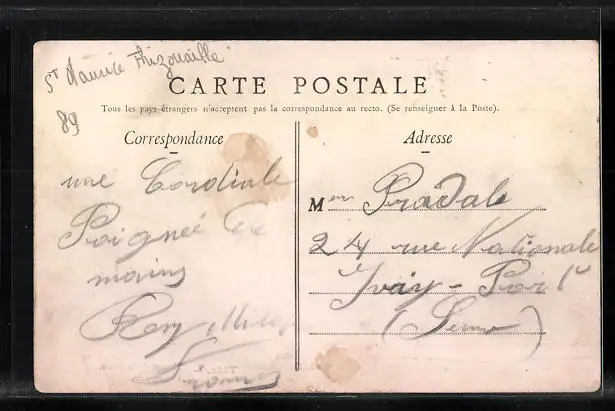 St Maurice Thizouaille
89
CARTE POSTALE
Tous les pays étrangers n'acceptent pas la correspondance au recto. (Se renseigner à la Poste).
Correspondance
Adresse
une Cordiale
Poignée de
mains
M Pradale
24 rue Nationale
Ivry - Port
(Seine)